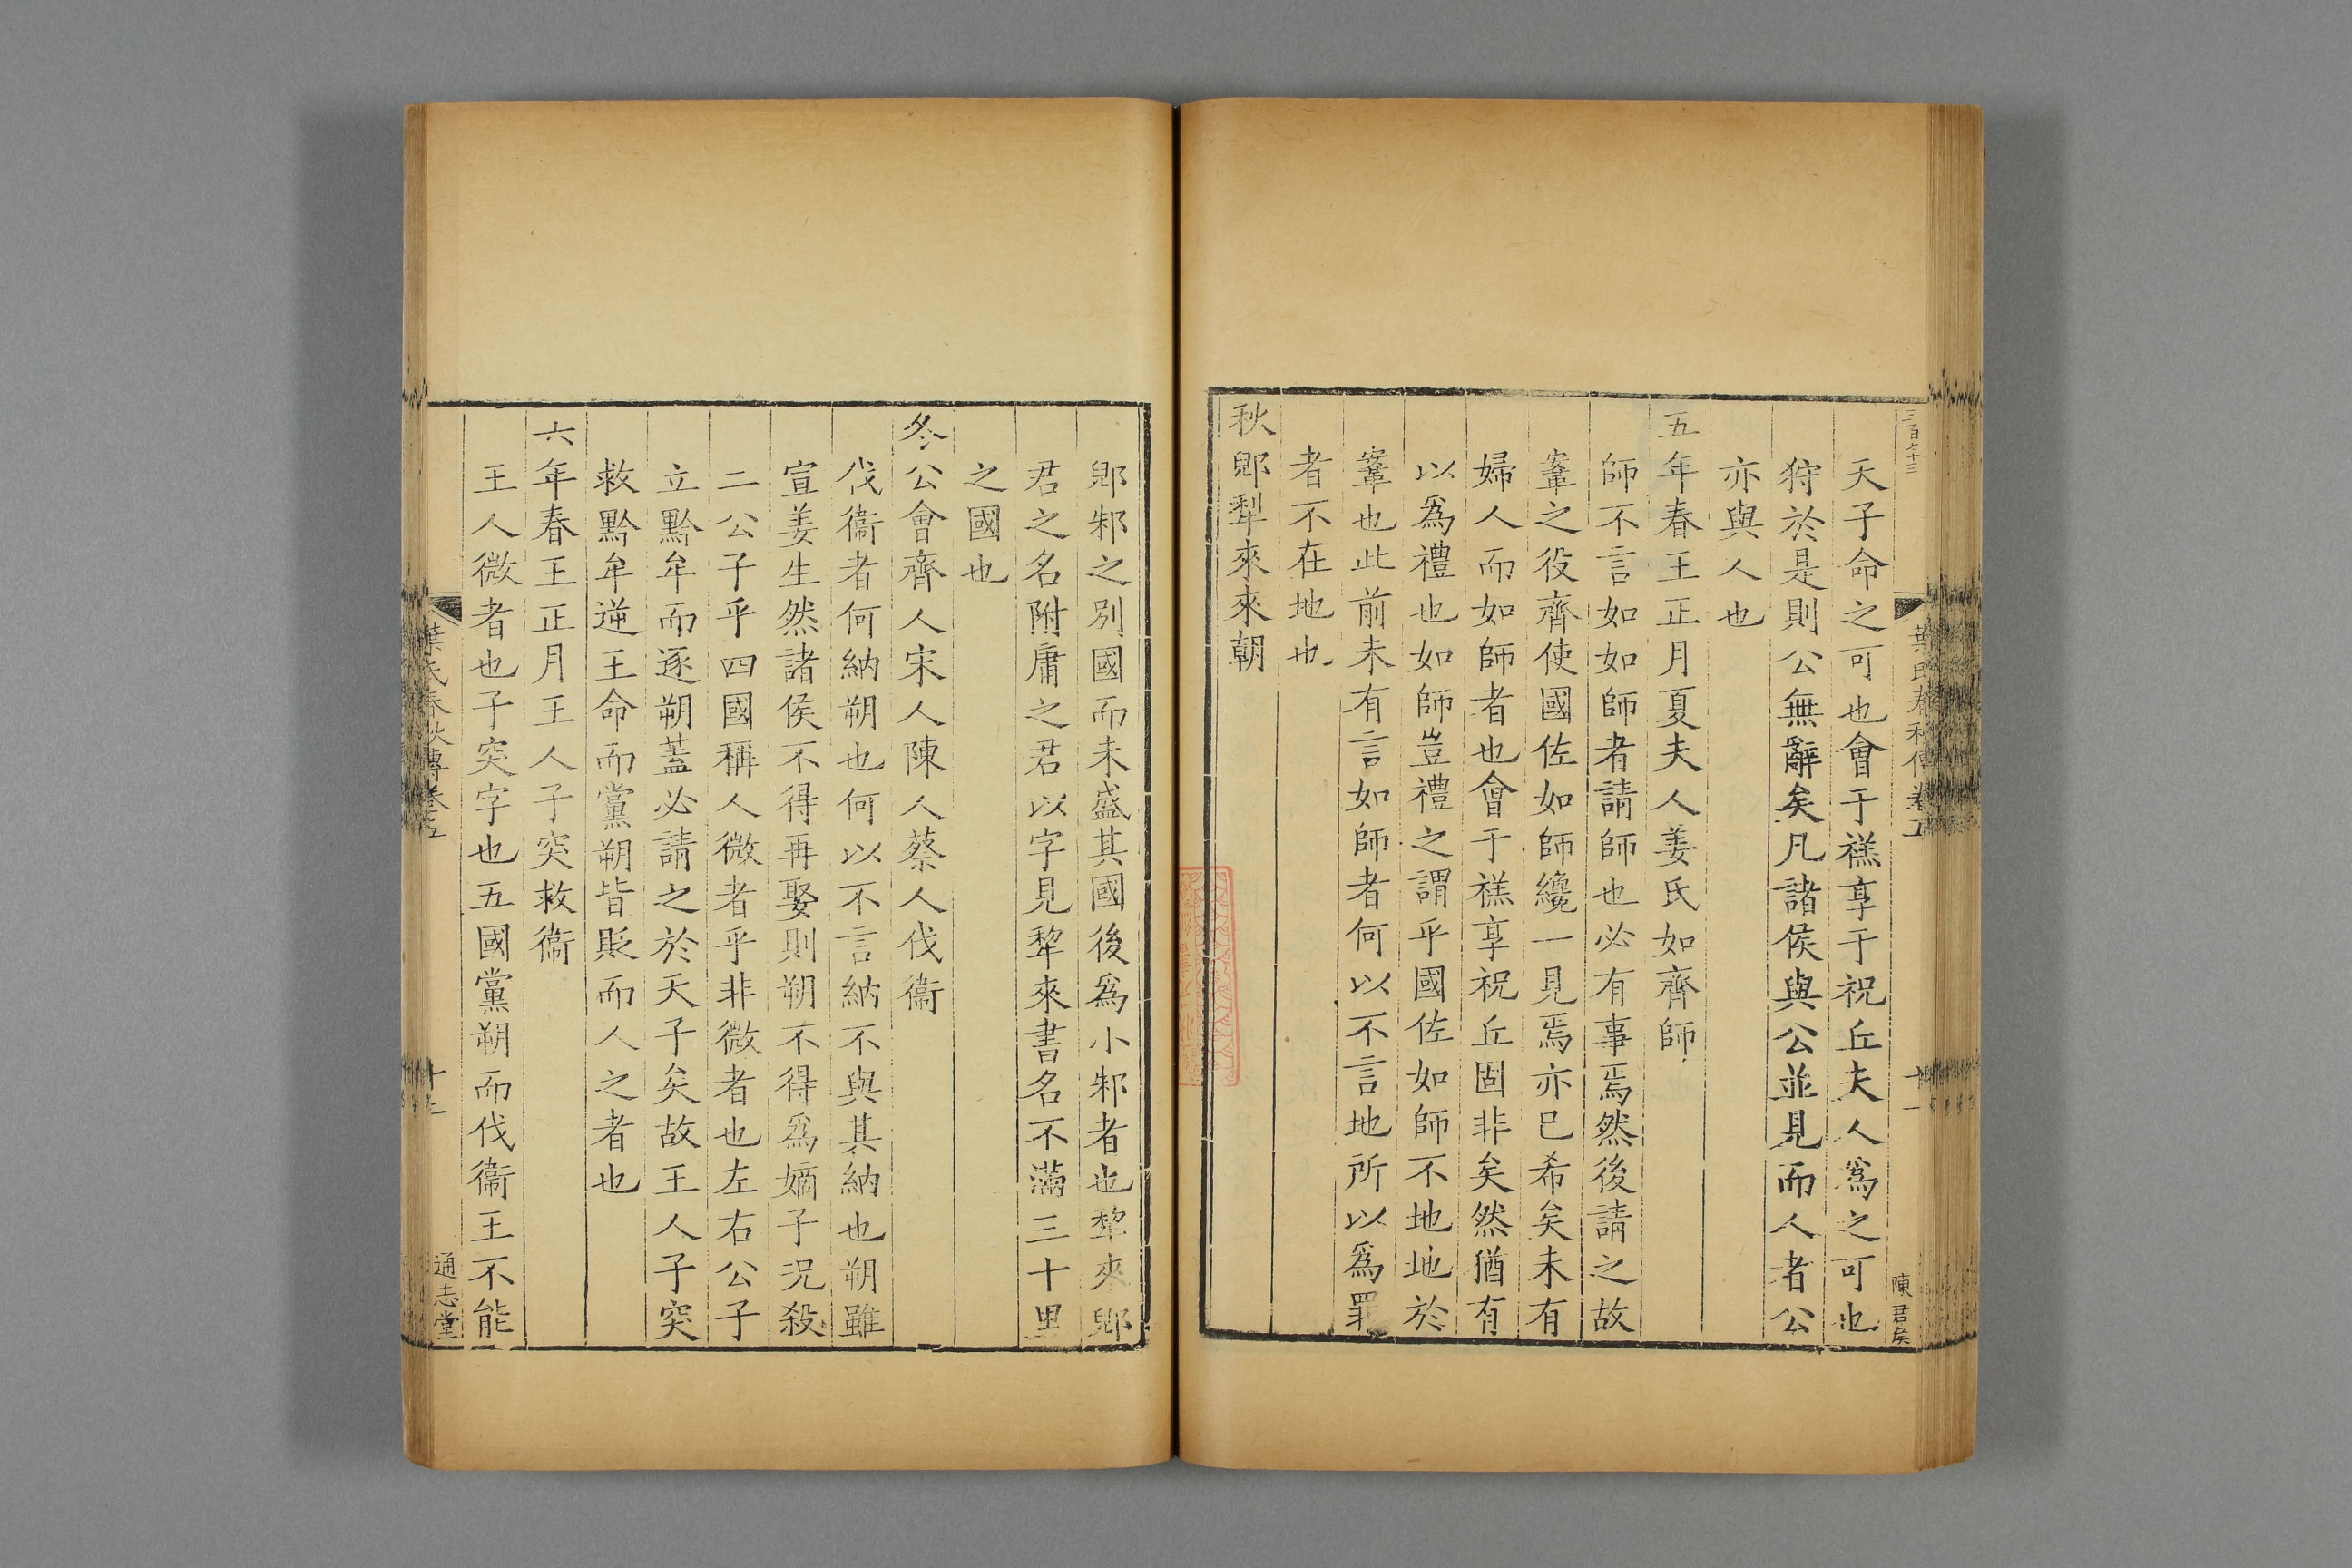 三百七十三
葉氏春秋傳卷五
十一
陳君矦
天子命之可也會于禚享于祝丘夫人爲之可也
狩於是則公無辭矣凡諸侯與公並見而人者公
亦與人也
五年春王正月夏夫人姜氏如齊師
師不言如如師者請師也必有事焉然後請之故
鞌之役齊使國佐如師纔一見焉亦已希矣未有
婦人而如師者也會于禚享祝丘固非矣然猶有
以爲禮也如師豈禮之謂乎國佐如師不地地於
鞌也此前未有言如師者何以不言地所以爲罪
者不在地也
秋郳犂來來朝
郳邾之別國而未盛其國後爲小邾者也犂來郳
君之名附庸之君以字見犂來書名不滿三十里
之國也
冬公會齊人宋人陳人蔡人伐衞
伐衞者何納朔也何以不言納不與其納也朔雖
宣姜生然諸侯不得再娶則朔不得爲嫡子況殺
二公子乎四國稱人微者乎非微者也左右公子
立黔牟而逐朔蓋必請之於天子矣故王人子突
救黔牟逆王命而黨朔皆貶而人之者也
六年春王正月王人子突救衞
王人微者也子突字也五國黨朔而伐衞王不能
葉氏春秋傳卷五
通志堂